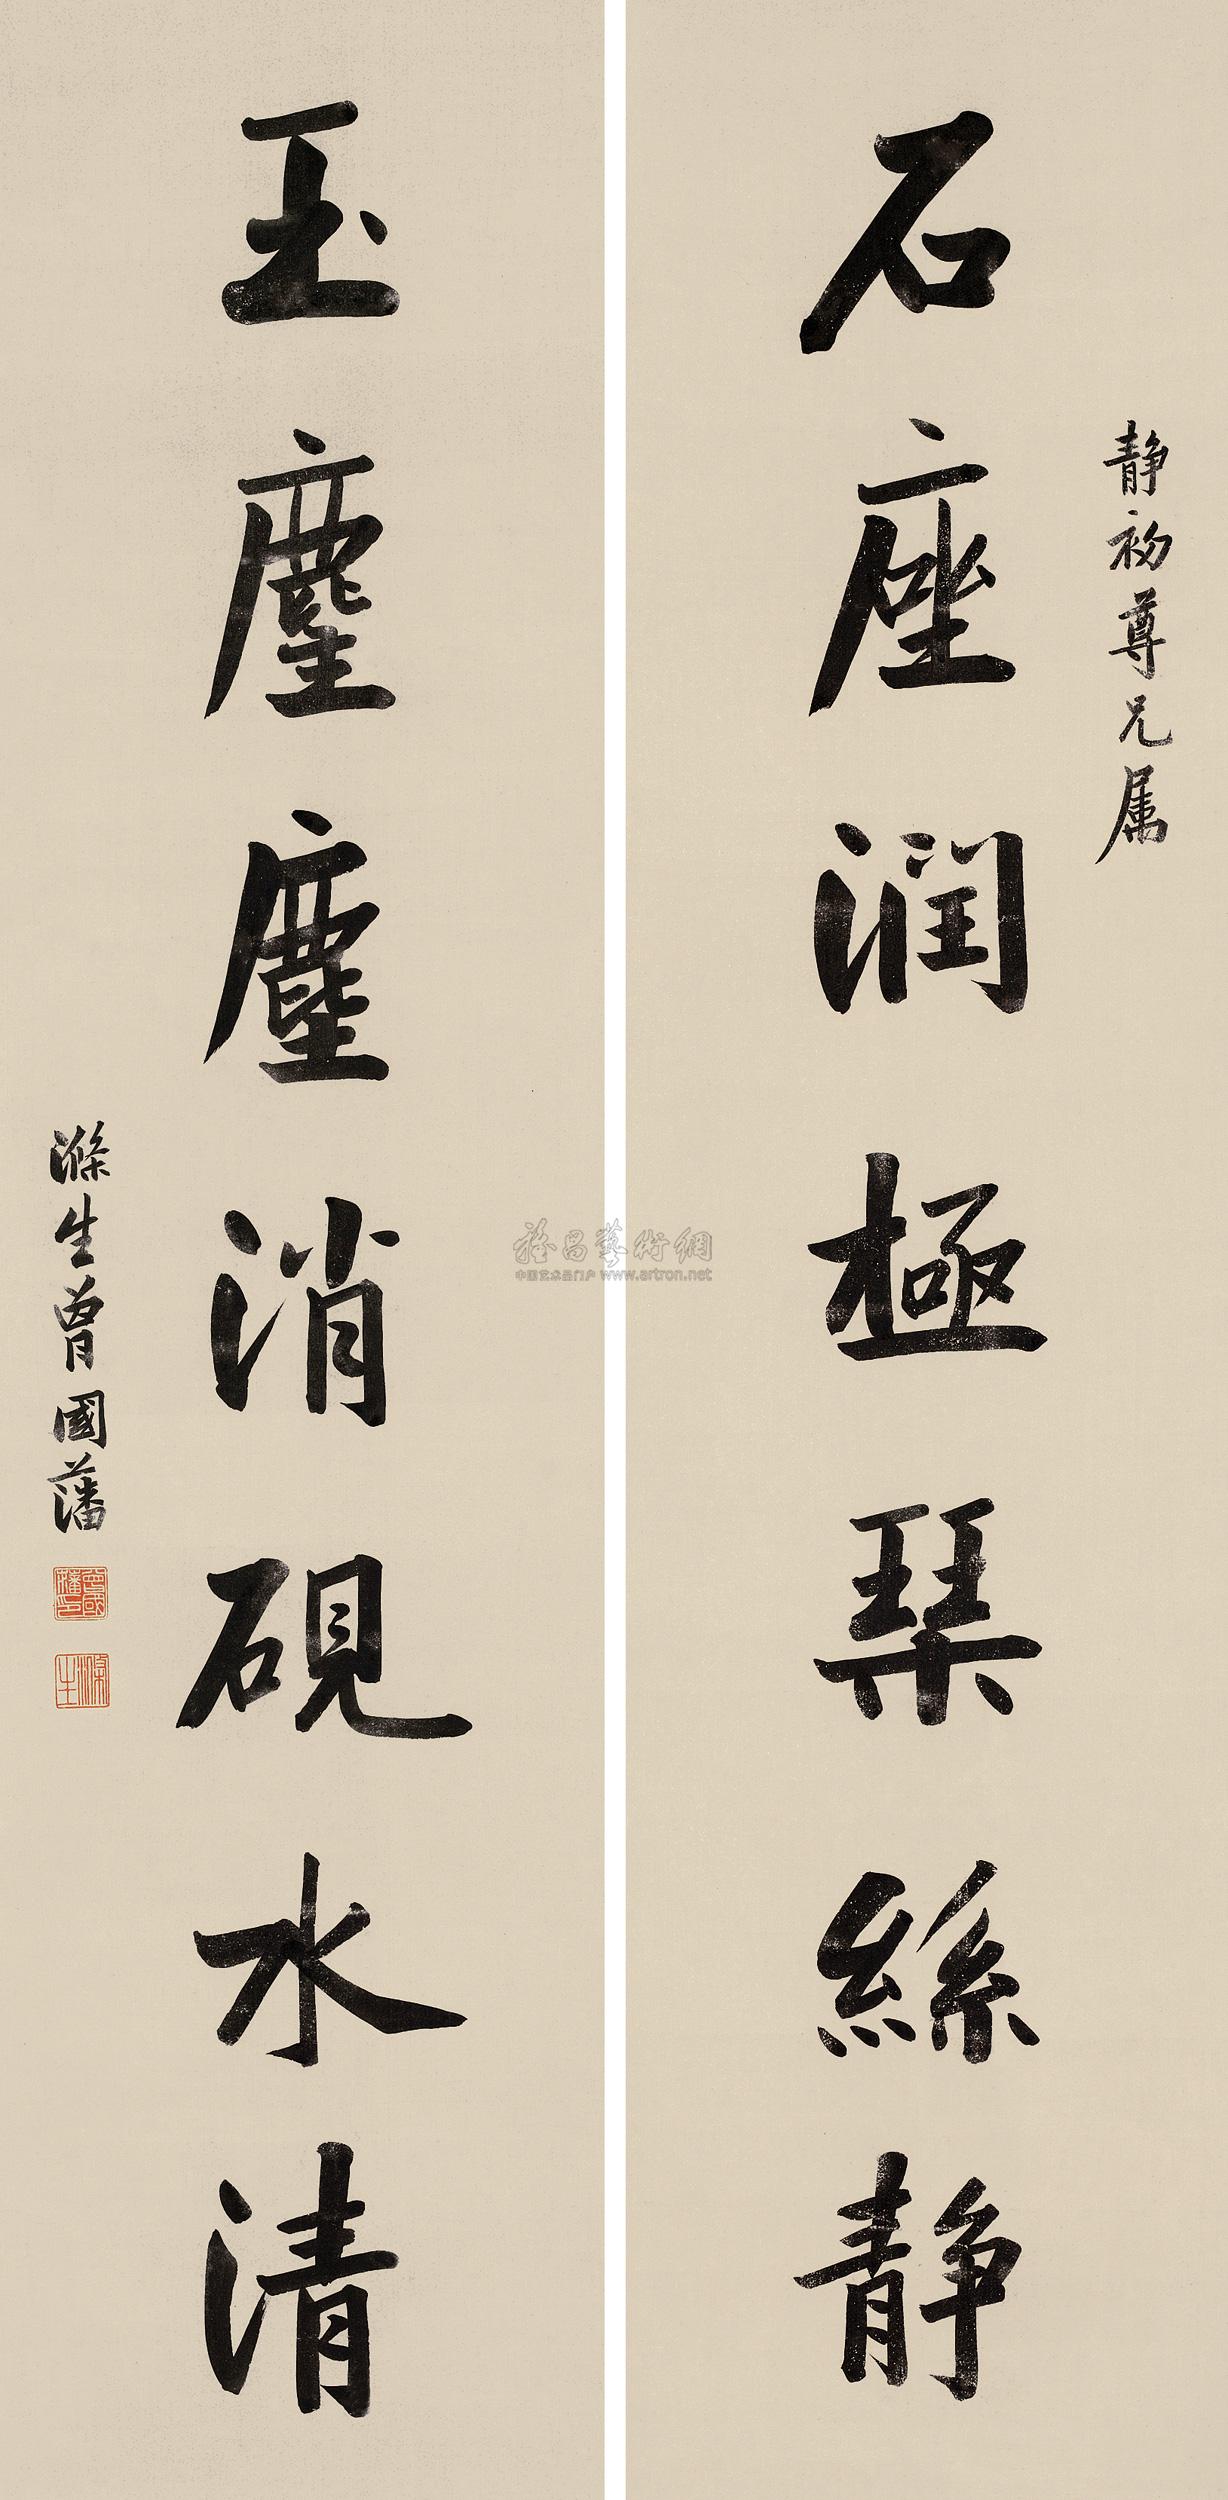 静初尊兄属
石座潤極琹絲静
玉麈塵消硯水清
滌生曾國藩
曾國藩印
滌生
雅昌藝術網
中国艺术品门户 www.artron.net